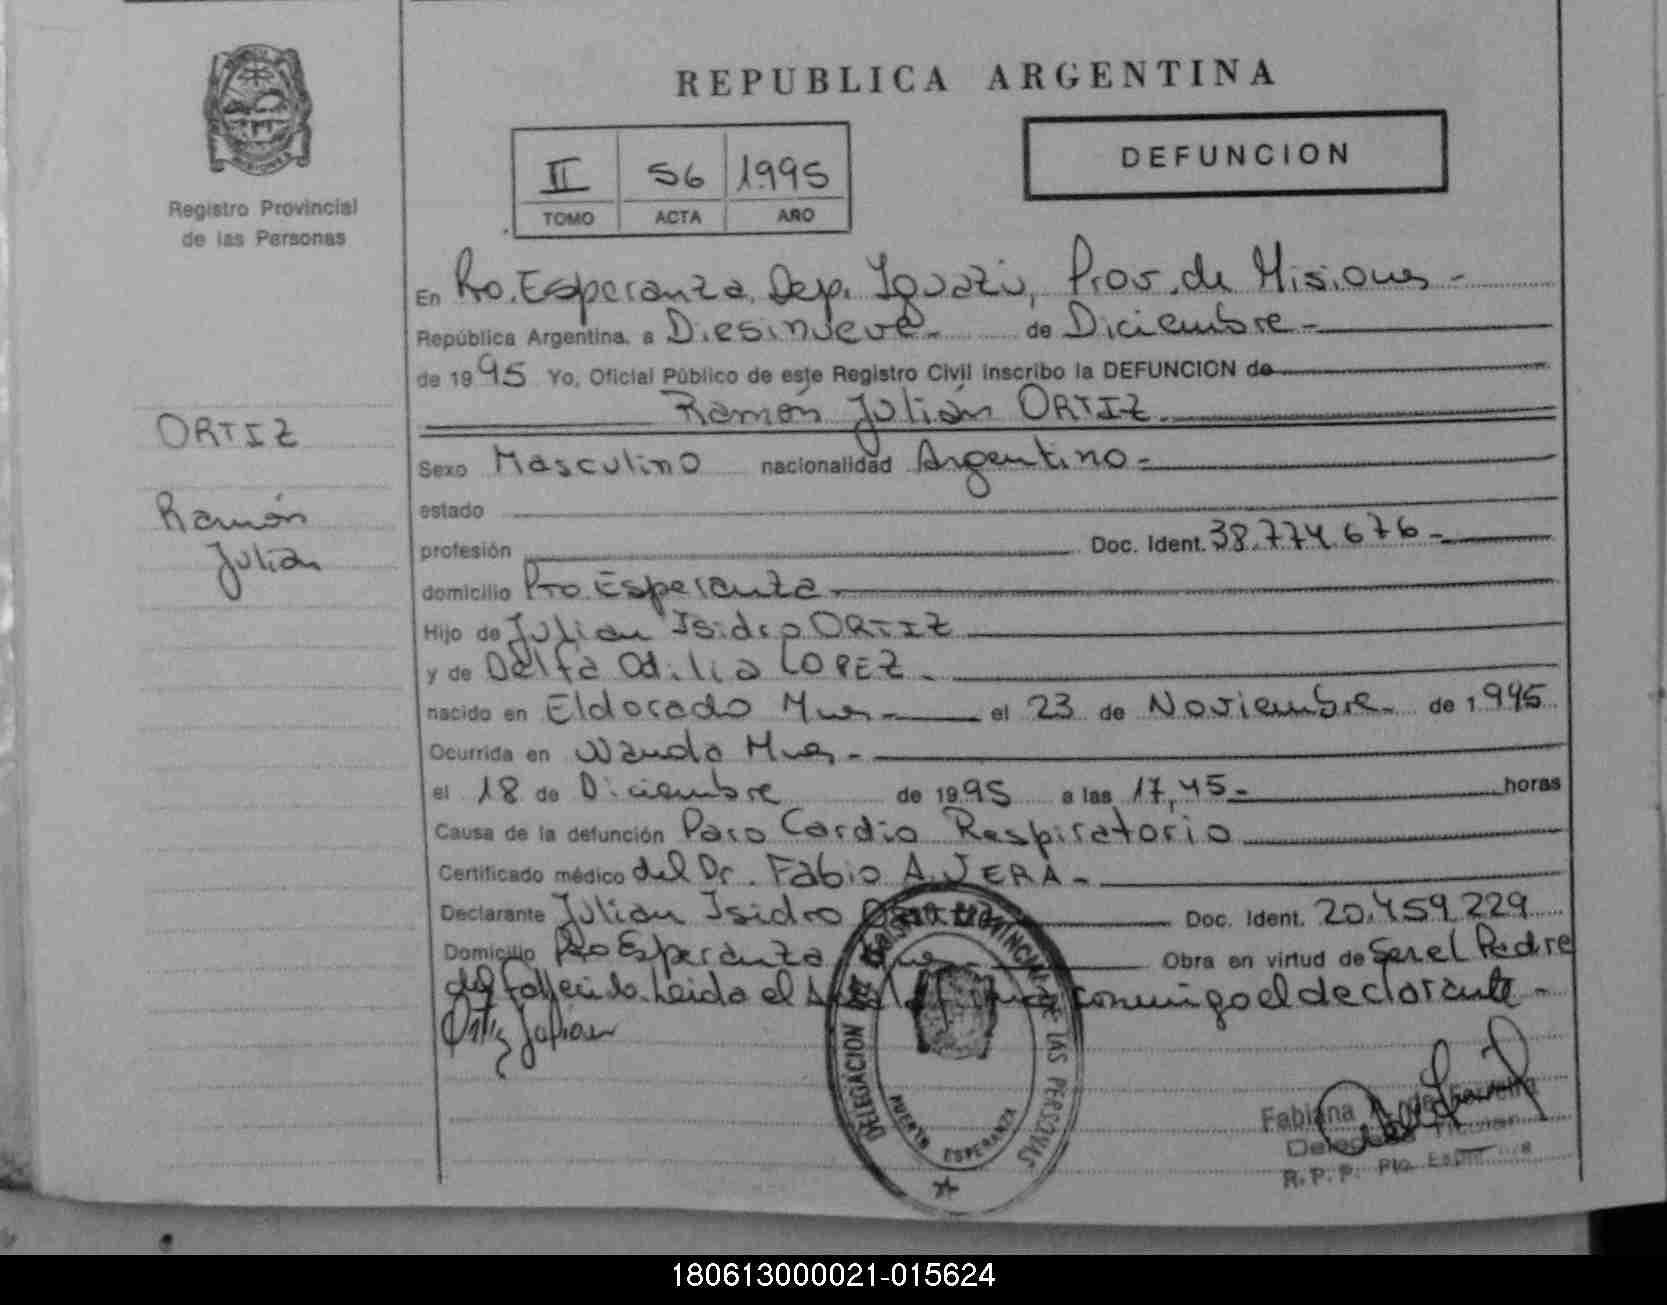 REPUBLICA ARGENTINA
DEFUNCION
II 56 1995
TOMO ACTA AÑO
Registro Provincial
de las Personas
ORTIZ
Ramón
Julián
En Pto. Esperanza, Dep. Iguazú, Prov. de Misiones -
República Argentina, a Diesinueve - de Diciembre -
de 1995 Yo, Oficial Público de este Registro Civil inscribo la DEFUNCION de
Ramón Julián ORTIZ
Sexo Masculino nacionalidad Argentino -
estado
profesión Doc. Ident. 38.774.676 -
domicilio Pto. Esperanza -
Hijo de Julian Isidro ORTIZ
y de Delfa Odilia LOPEZ -
nacido en Eldorado Mnes - el 23 de Noviembre - de 1.995
Ocurrida en Wanda Mnes -
el 18 de Diciembre de 1995 a las 17,45 - horas
Causa de la defunción Paro Cardio Respiratorio
Certificado médico del Dr. Fabio A. VERA -
Declarante Julian Isidro Doc. Ident. 20.459.229
Domicilio Pto Esperanza Obra en virtud de Ser el Padre
del fallecido. Leida el conmigo el declarante -
Ortiz Julian
DELEGACION LAS PERSONAS
PUERTO ESPERANZA
Fabiana de Ferreira
Delegada Titular
R.P.P. Pto. Esperanza
180613000021-015624